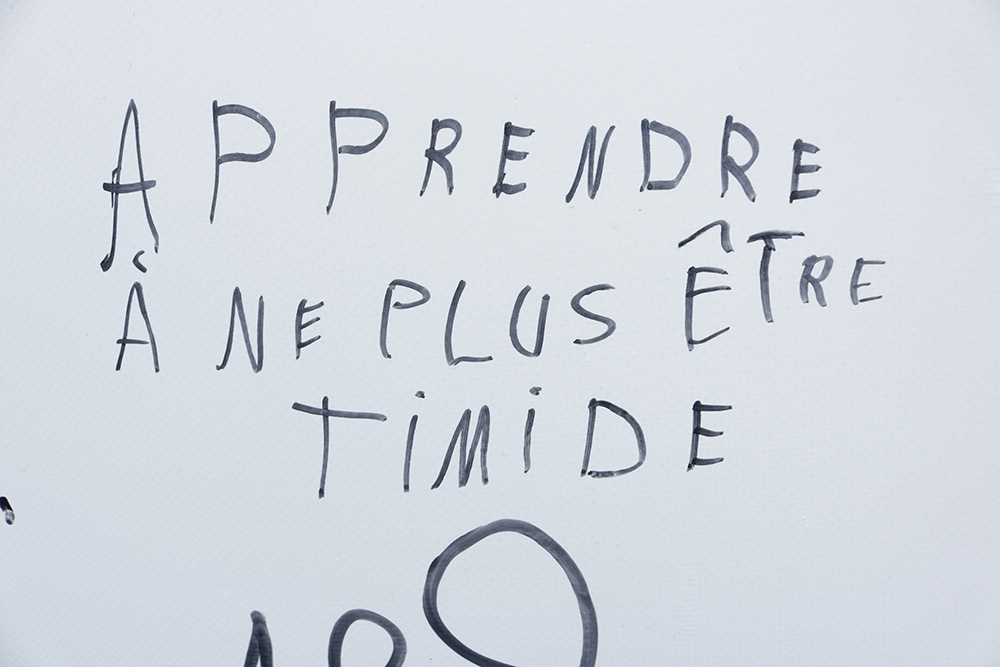 APPRENDRE
À NE PLUS ÊTRE
TiMiDE